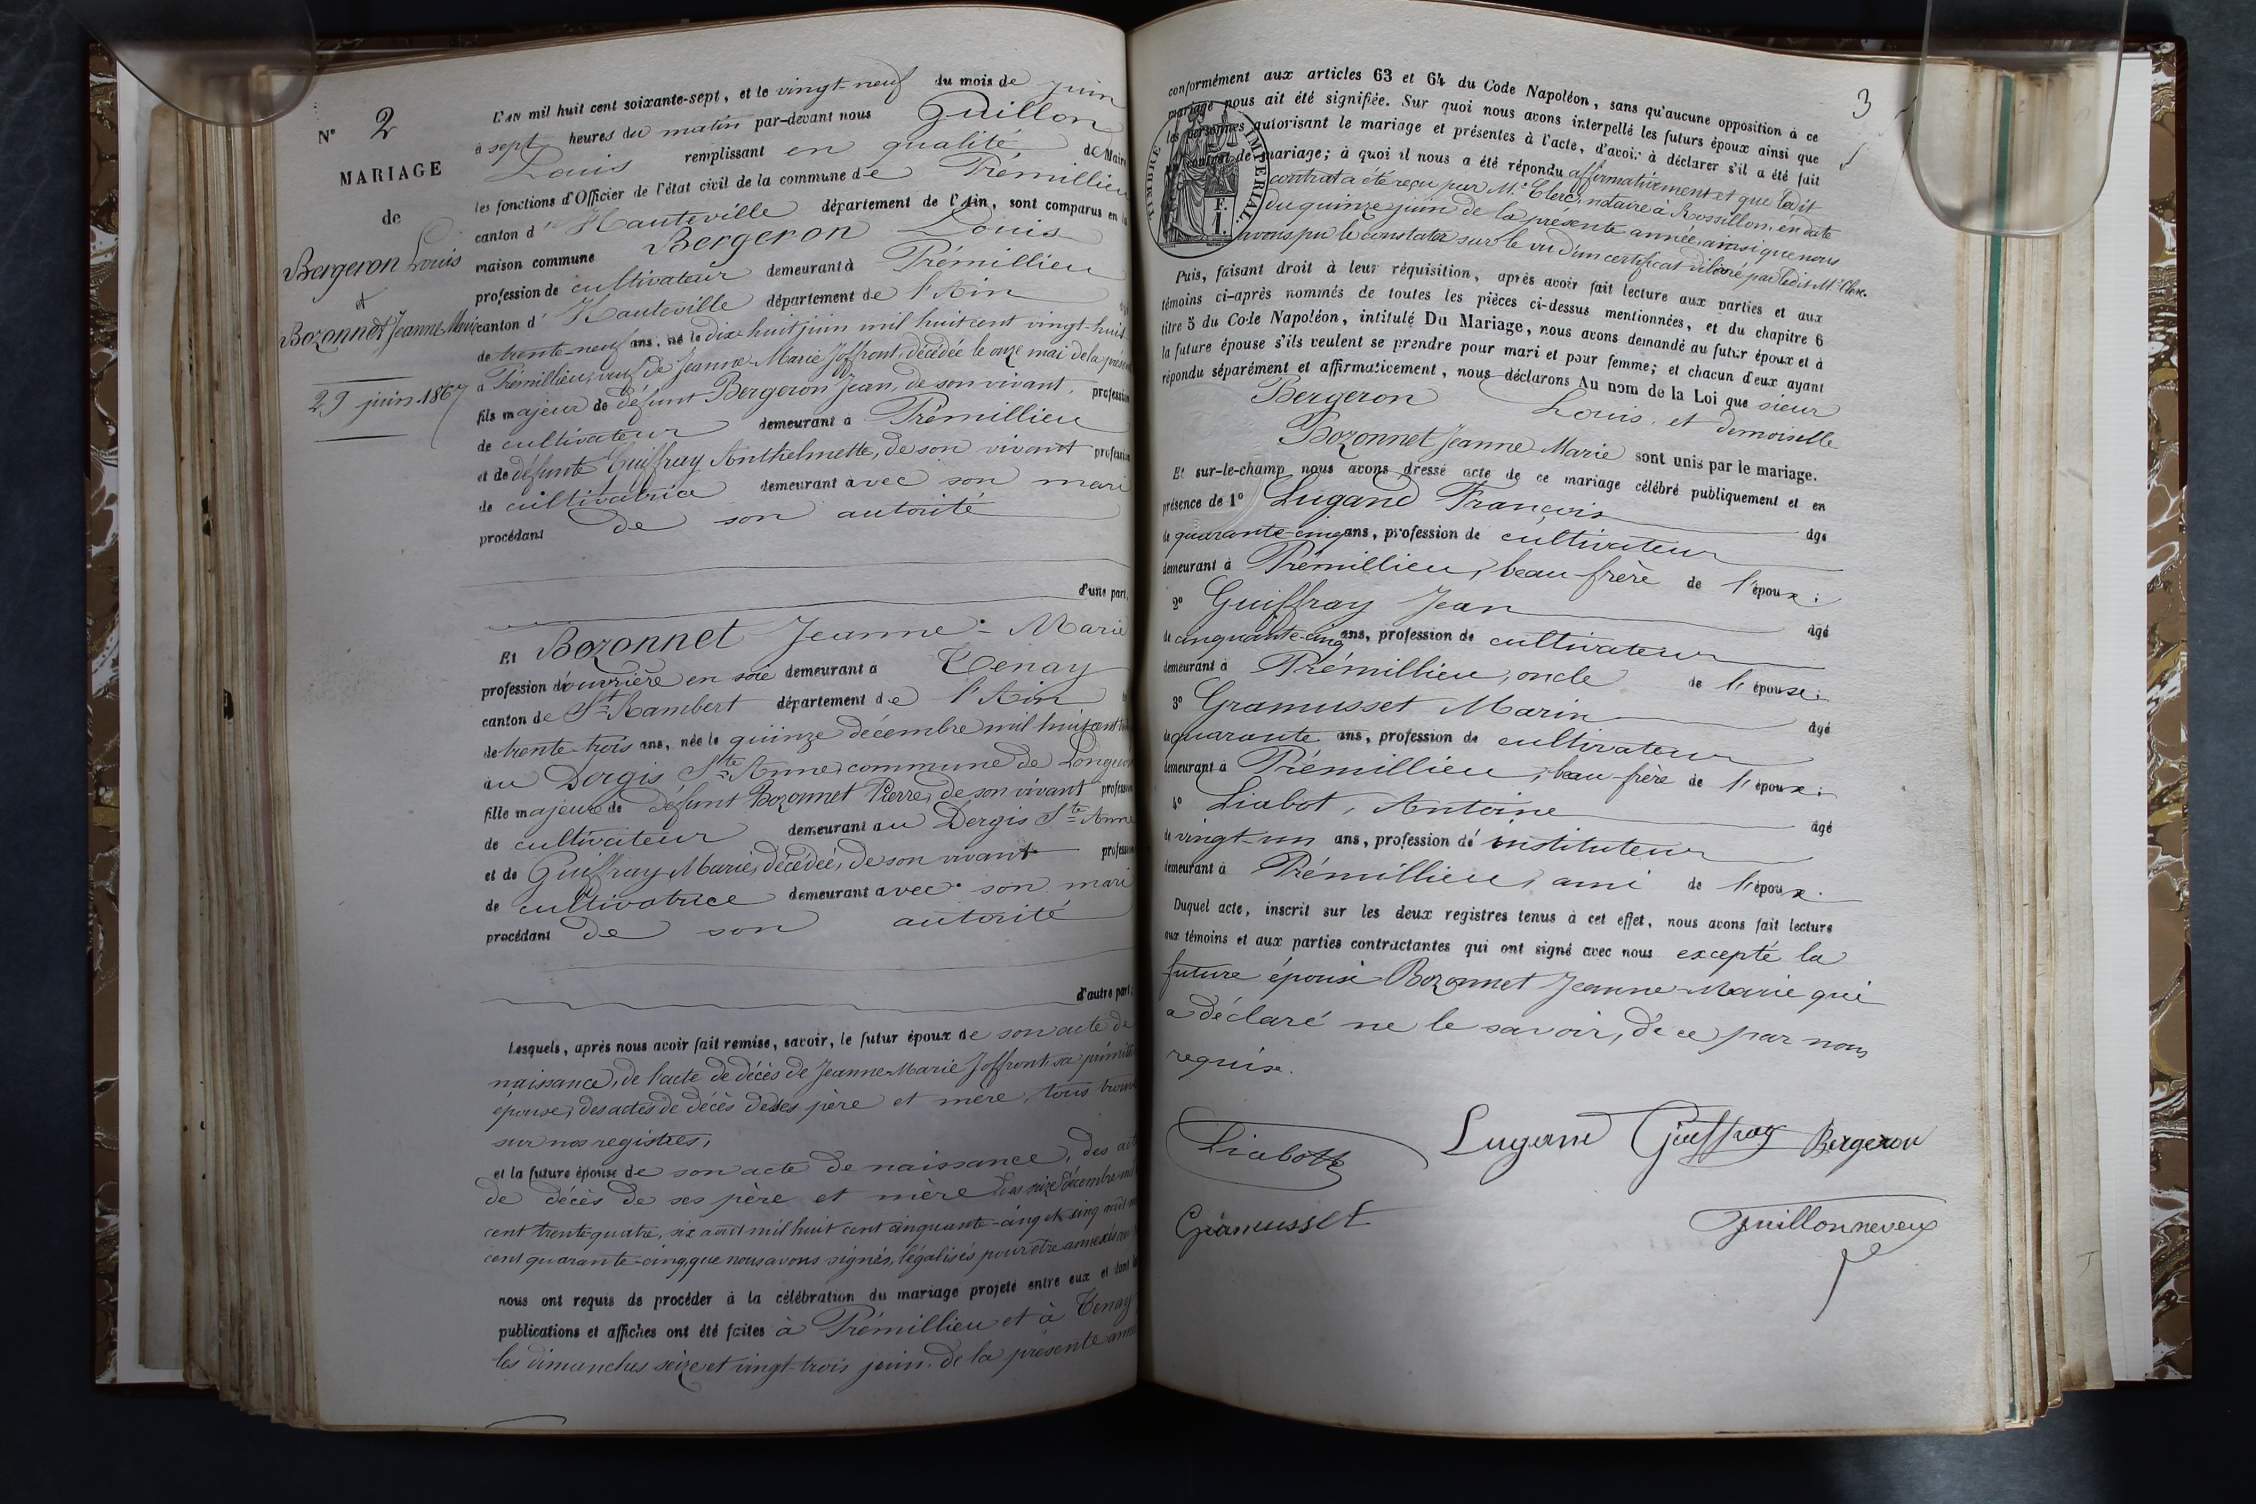 N° 2
MARIAGE
de
Bergeron Louis
et
Bozonnet Jeanne Marie
29 juin 1867
L'AN mil huit cent soixante-sept, et le vingt-neuf du mois de juin
à sept heures du matin par-devant nous Guillon
Louis remplissant en qualité de Maire
les fonctions d'Officier de l'état civil de la commune de Prémillieu
canton d' Hauteville département de l'Ain, sont comparus en la
maison commune Bergeron Louis
profession de cultivateur demeurant à Prémillieu
canton d' Hauteville département de l'Ain âgé
de trente-neuf ans, né le dix huit juin mil huit cent vingt-huit
à Prémillieu, veuf de Jeanne-Marie Joffront, décédée le onze mai de la
fils majeur de défunt Bergeron Jean, de son vivant, profession
de cultivateur demeurant à Prémillieu
et de défunte Guiffray Anthelmette, de son vivant profession
de cultivatrice demeurant avec son mari
procédant de son autorité
d'une part,
Et Bozonnet Jeanne-Marie
profession d'ouvrière en soie demeurant à Tenay
canton de St Rambert département de l'Ain
de trente-trois ans, née le quinze décembre mil huit cent
au Dergis Ste Anne, commune de
fille majeure de défunt Bozonnet Pierre, de son vivant profession
de cultivateur demeurant au Dergis Ste Anne
et de Guiffray Marie, décédée, de son vivant profession
de cultivatrice demeurant avec son mari
procédant de son autorité
d'autre part;
Lesquels, après nous avoir fait remise, savoir, le futur époux de son acte de
naissance, de l'acte de décès de Jeanne-Marie Joffront, sa première
épouse, des actes de décès de ses père et mère, tous
sur nos registres,
et la future épouse de son acte de naissance, des
de décès de ses père et mère des seize décembre
cent trente quatre, six août mil huit cent cinquante-cinq et cinq août
cent quarante-cinq, que nous avons signés, légalisés pour être annexés
nous ont requis de procéder à la célébration du mariage projeté entre eux et dont
publications et affiches ont été faites à Prémillieu et à Tenay
les dimanches seize et vingt-trois juin de la présente année
3
conformément aux articles 63 et 64 du Code Napoléon, sans qu'aucune opposition à ce
mariage nous ait été signifiée. Sur quoi nous avons interpellé les futurs époux ainsi que
les personnes autorisant le mariage et présentes à l'acte, d'avoir à déclarer s'il a été fait
un contrat de mariage; à quoi il nous a été répondu affirmativement et que ledit
contrat a été reçu par Me Clerc, notaire à Rossillon, en date
du quinze juin de la présente année, ainsi que nous
avons pu le constater sur le vu d'un certificat délivré par ledit Me Clerc.
TIMBRE IMPERIAL
F. 1.
Puis, faisant droit à leur réquisition, après avoir fait lecture aux parties et aux
témoins ci-après nommés de toutes les pièces ci-dessus mentionnées, et du chapitre 6
titre 5 du Code Napoléon, intitulé Du Mariage, nous avons demandé au futur époux et à
la future épouse s'ils veulent se prendre pour mari et pour femme; et chacun d'eux ayant
répondu séparément et affirmativement, nous déclarons Au nom de la Loi que sieur
Bergeron Louis, et demoiselle
Bozonnet Jeanne Marie sont unis par le mariage.
Et sur-le-champ nous avons dressé acte de ce mariage célébré publiquement et en
présence de 1° Lugand François âgé
de quarante-cinq ans, profession de cultivateur
demeurant à Prémillieu, beau-frère de l'époux;
2° Guiffray Jean âgé
de cinquante-cinq ans, profession de cultivateur
demeurant à Prémillieu, oncle de l'épouse;
3° Gramusset Marin âgé
de quarante ans, profession de cultivateur
demeurant à Prémillieu, beau-frère de l'époux;
4° Liabot, Antoine âgé
de vingt-un ans, profession d'instituteur
demeurant à Prémillieu, ami de l'époux.
Duquel acte, inscrit sur les deux registres tenus à cet effet, nous avons fait lecture
aux témoins et aux parties contractantes qui ont signé avec nous excepté la
future épouse Bozonnet Jeanne-Marie qui
a déclaré ne le savoir, de ce par nous
requise.
Liabot Lugand Guiffray Bergeron
Gramusset Guillon neveu